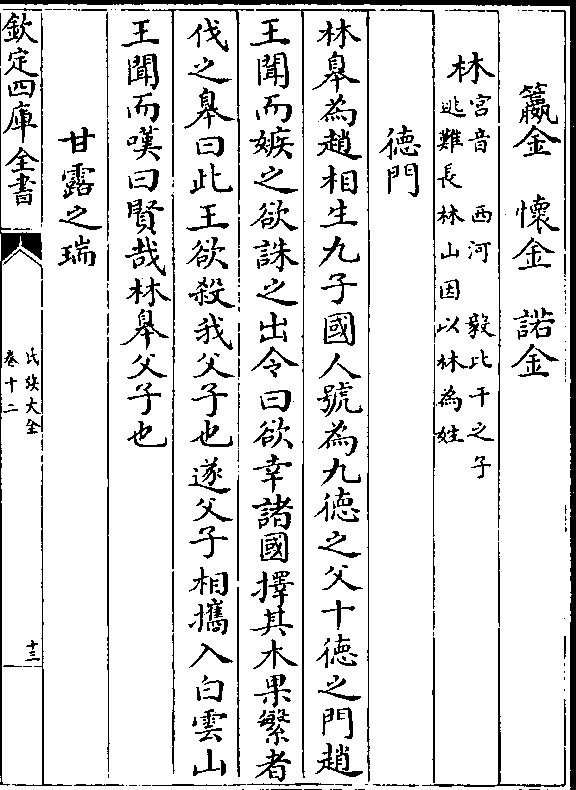 籯金　懷金　諾金
林宮音　西河　毅比干之子
逃難長林山因以林為姓
德門
林皋為趙相生九子國人號為九德之父十德之門趙
王聞而嫉之欲誅之出令曰欲幸諸國擇其木果繁者
伐之皋曰此王欲殺我父子也遂父子相攜入白雲山
王聞而嘆曰賢哉林皋父子也
甘露之瑞
欽定四庫全書
氏族大全
卷十二
十三